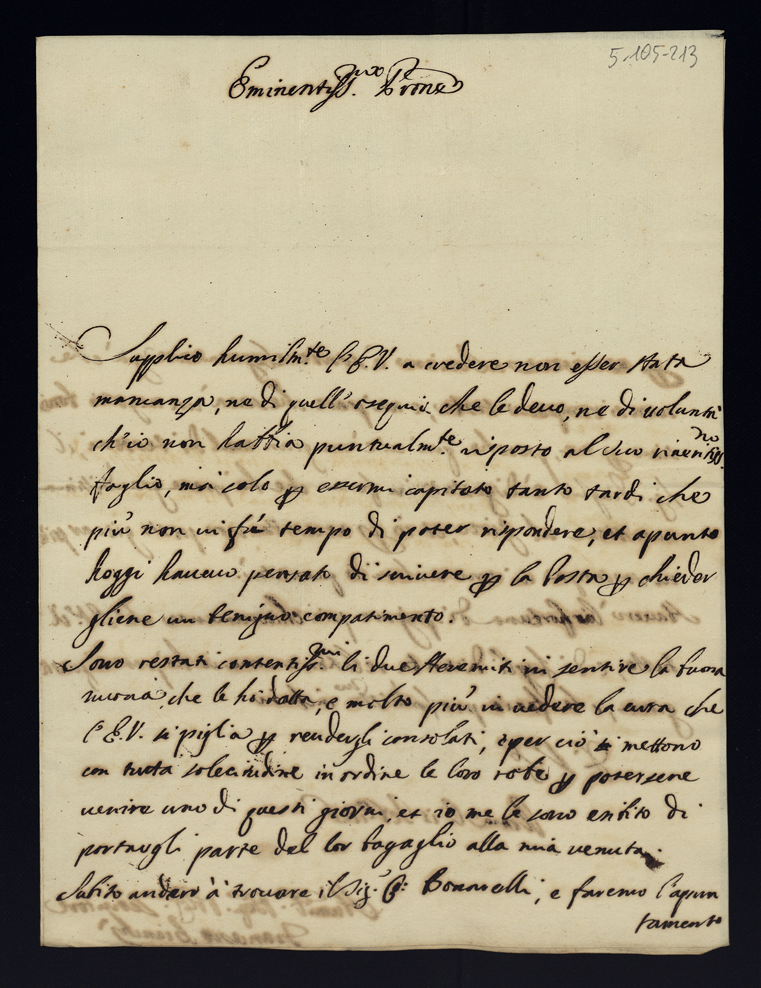 5-105-213
Eminentiss.mo P.rone
Supplico humilm.te l'E.V. a credere non esser stata
mancanza, ne di quell'ossequio che le devo, ne di volontà
ch'io non habbia puntualm.te risposto al suo riveritiss.mo
foglio, mà solo p essermi capitato tanto tardi che
più non vi fù tempo di poter rispondere, et apunto
hoggi havevo pensato di scrivere p la Posta p chieder
gliene un benigno compatimento.
Sono restati contentiss.mi li due in sentire la buona
nuova, che le hò datta, e molto più in vedere la cura che
l'E.V. si piglia p rendergli consolati, e per ciò si mettono
con tutta solecitudine in ordine le loro robe p potersene
venire uno di questi giorni, et io me le sono esibito di
portargli parte del lor bagaglio alla mia venuta.
Subito andarò à trovare il Sig.r C: Bonarelli, e faremo l'apun
tamento